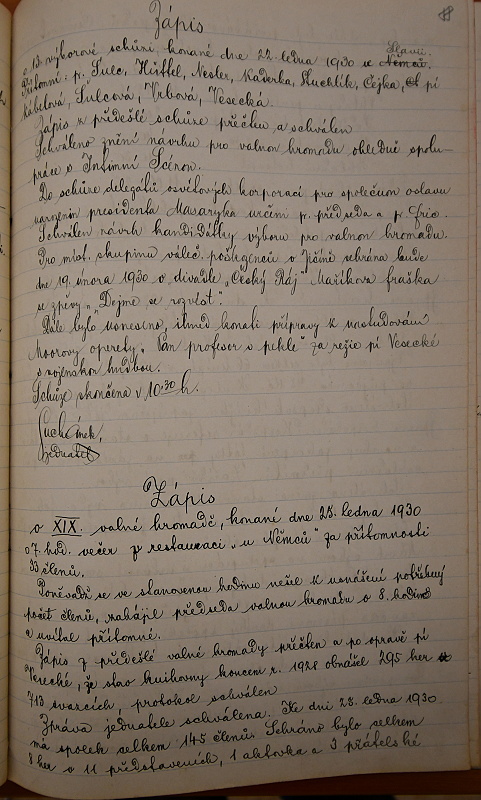 Zápis
o 13. výborové schůzi, konané dne 22. ledna 1930 u Slavii.
Přítomni: p. Šulc, Hüffel, Nesler, Kaderka, Suchlík, Čejka, pí
Kábelová, Šulcová, Vrbová, Vesecká.
Zápis z předešlé schůze přečten a schválen
Schváleno znění návrhu pro valnou hromadu ohledně spolu-
práce s Intimní Scénou.
Do schůze delegátů osvětových korporací pro společnou oslavu
narozenin presidenta Masaryka určeni p. předseda a p.
Schválen návrh kandidátky výboru pro valnou hromadu.
Pro míst. skupinu váleč. poškozenců v Jičíně sehrána bude
dne 19. února 1930 v divadle „Český Ráj" Maříkova fraška
se zpěvy „Dejme se rozvést".
Dále bylo usneseno, ihned konati přípravy k nastudování
Moorovy operety „Pan profesor v pekle" za režie pí Vesecké
s vojenskou hudbou.
Schůze skončena v 10·30 h.
jednatel
Zápis
o XIX. valné hromadě, konané dne 25. ledna 1930
o 7. hod. večer v restauraci „u Němců" za přítomnosti
33 členů.
Poněvadž se ve stanovenou hodinu nesešel k usnášení potřebný
počet členů, zahájil předseda valnou hromadu o 8. hodině
a uvítal přítomné.
Zápis z předešlé valné hromady přečten a po opravě pí
Vesecké, že stav knihovny koncem r. 1928 obnášel 295 her
713 svazcích, protokol schválen
Zpráva jednatele schválena. Ke dni 25. ledna 1930
má spolek celkem 145 členů. Sehráno bylo celkem
8 her o 11 představeních, 1 aktovka a 3 přátelské